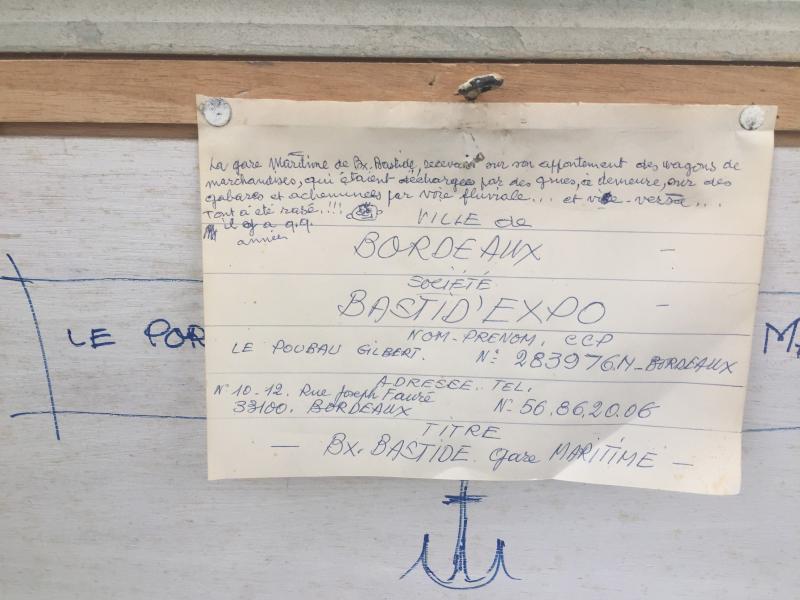 La gare Maritime de Bx. Bastide, recevait sur son appontement des wagons de
marchandises, qui étaient déchargées par des grues, à demeure, sur des
gabares et acheminées par voie fluviale... et vice-versa...
Tout à été rasé.!!!
il y a q.q.
années
VILLE de
BORDEAUX -
SOCIÉTÉ
BASTID'EXPO -
NOM-PRENOM. CCP
LE POUBAU GILBERT. N: 283976.M_BORDEAUX
ADRESSE. TEL.
N° 10-12. Rue Joseph Fauré
33100. BORDEAUX N- 56.86.20.06
TITRE
- Bx. BASTIDE. Gare MARITIME -
LE POR
MA